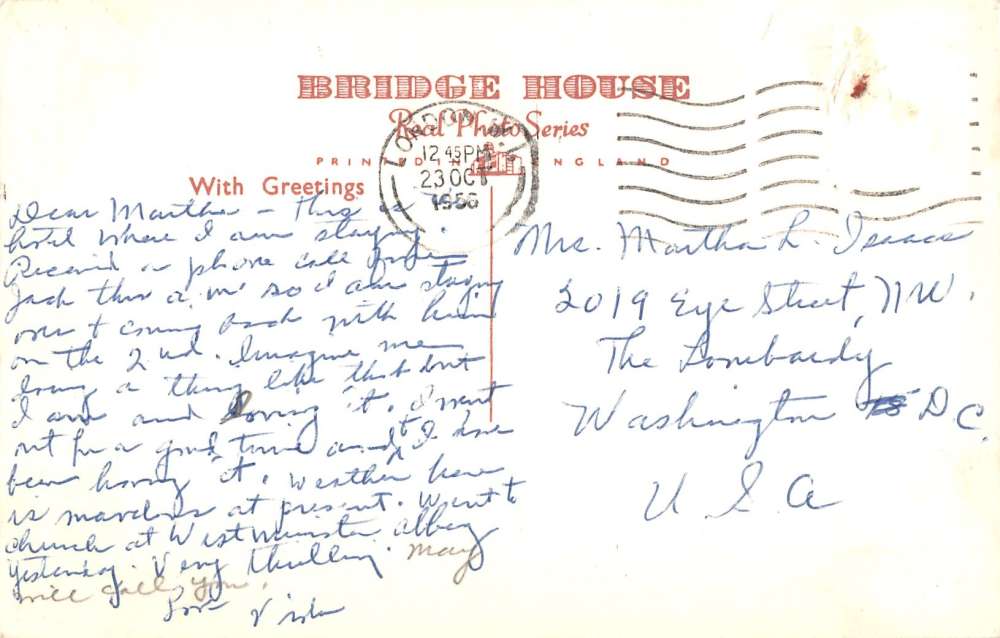 BRIDGE HOUSE
Real Photo Series
PRINTED IN ENGLAND
With Greetings
LONDON
12 45 PM
23 OCT
1956
Dear Martha – this is
hotel where I am staying.
Received a phone call from
Jack this a.m. so I am staying
over & coming back with him
on the 2nd. Imagine me
doing a thing like that but
I am and loving it. I went
out for a good time and I have
been having it. Weather here
is marvelous at present. Went to
church at Westminster Abbey
yesterday. Very thrilling. May
will call you.
Mrs. Martha L. Isaacs
2019 Eye Street, NW.
The Lombardy
Washington D C.
U S A